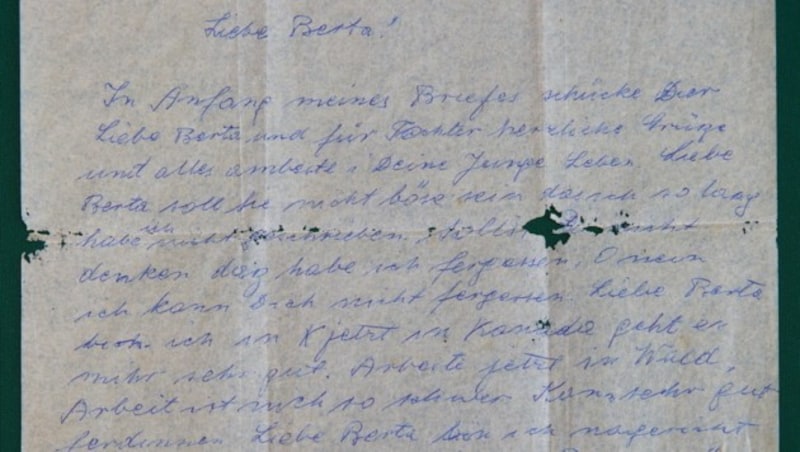 Liebe Berta!
In Anfang meines Briefes schücke Dir
Liebe Berta und für Tochter herzliche Grüze
und alles ambeste i Deine Junge Leben Liebe
Berta soll he nicht böse sein das ich so lang
habe ich nicht geschrieben, sollst nicht
denken daz habe ich fergessen. O nein
ich kann Dich nicht fergessen. Liebe Berta
bin ich in K jetzt in Kanada geht es
mihr sehr gut. Arbeite jetzt in Wald,
Arbeit ist nich so schwer Kann sehr gut
ferdinnen Liebe Berta bin ich